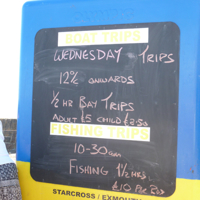 BOAT TRIPS
WEDNESDAY - TRIPS
12¼ ONWARDS
½ HR BAY TRIPS
ADULT £5 CHILD £2.50
FISHING TRIPS
10-30am
FISHING 1½ HRS.
£10 Per Rod
STARCROSS / EXMOUTH